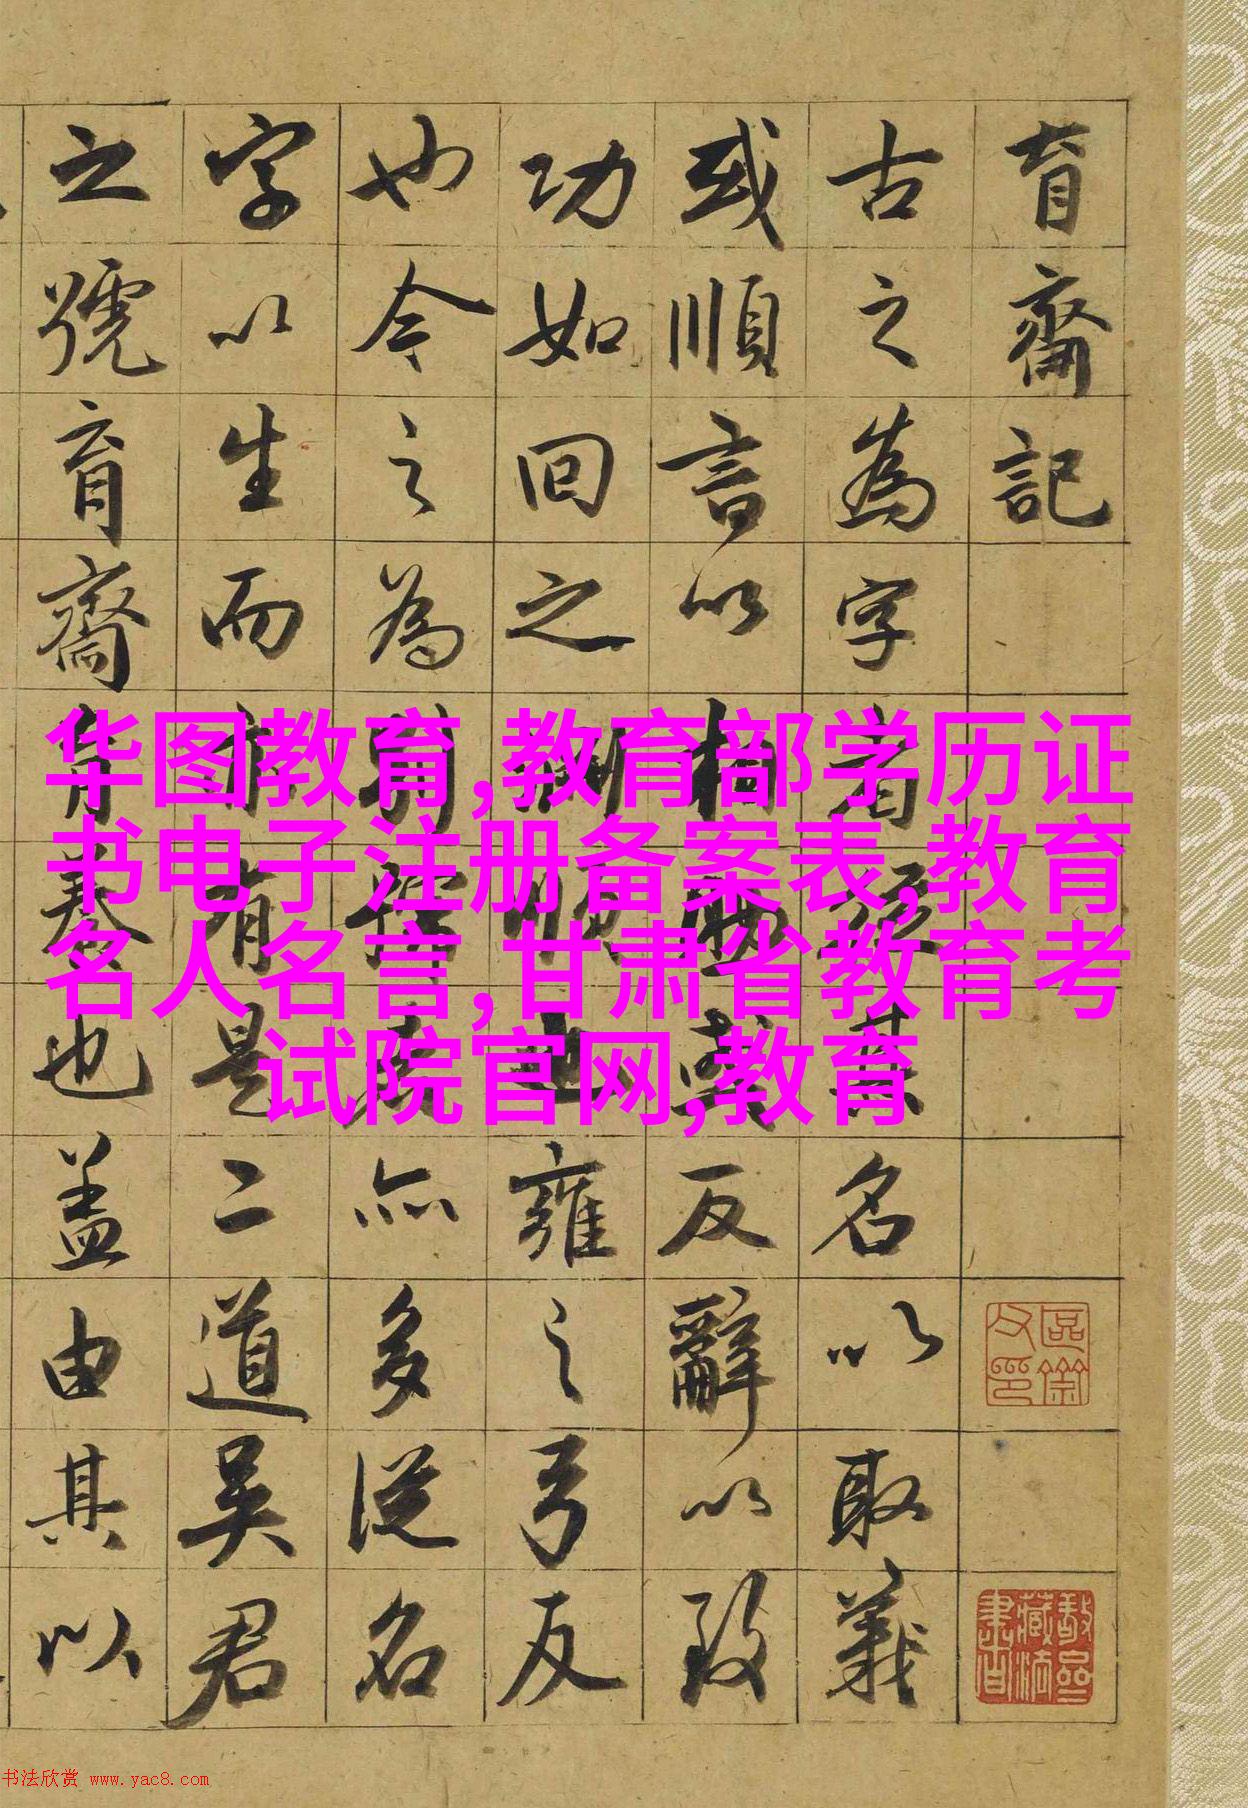 育齋記
古之為字者其名以取義
或順言以相反辭以致
功如回之也雍之弓反
也令之為別亦多從名
字以生而有是二道吳君
之號育齋育養也蓋由其以
华图教育,教育部学历证
书电子注册备案表,教育
名人名言,甘肃省教育考
试院官网,教育
书法欣赏 www.yac8.com